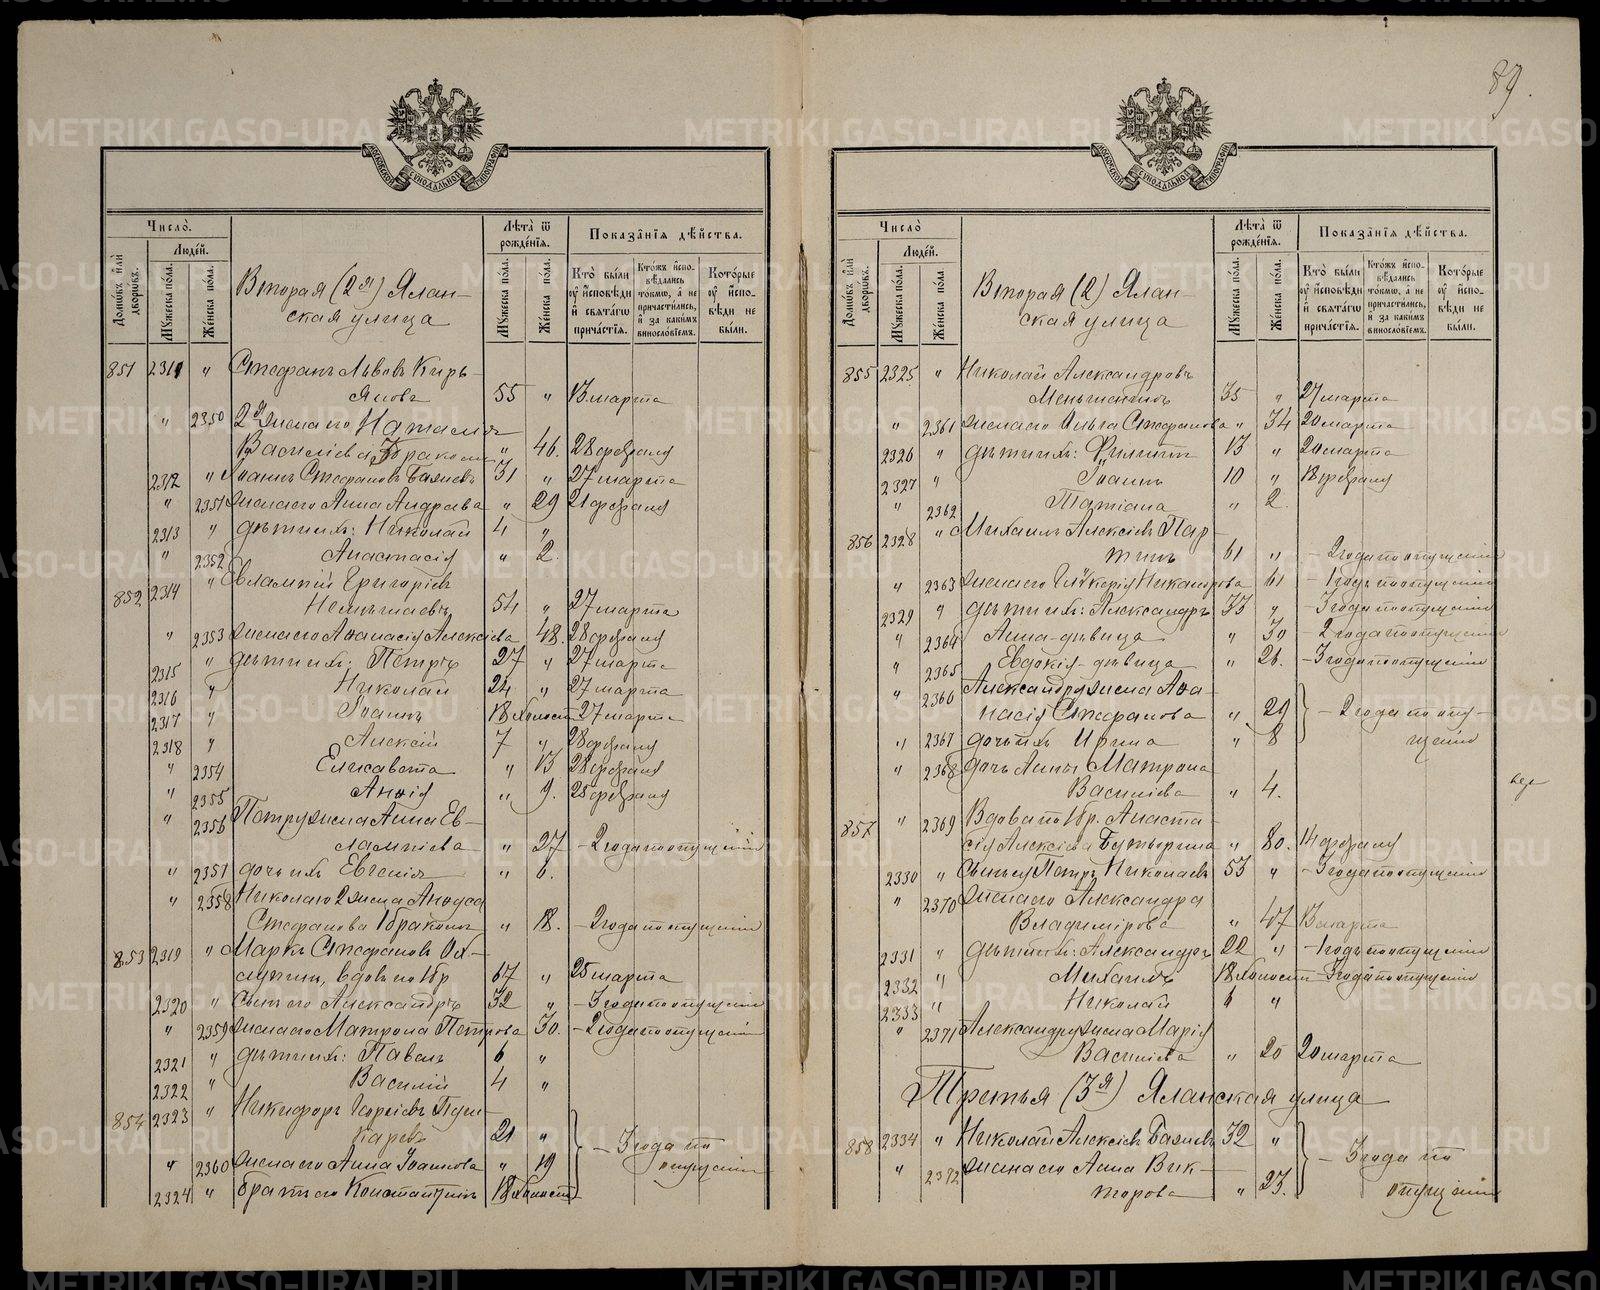 89.
МОСКОВСКОЙ СѴНОДАЛЬНОЙ ТИПОГРАФІИ
Число̀.
Людéй.
Домѡвъ и҆лѝ дворѡвъ.
Мꙋжеска пóла.
Жéнска пóла.
Вторая (2я) Ялан-
ская улица
Лѣта̀ ѿ рождéнїѧ.
Мꙋжеска пóла.
Жéнска пóла.
Показа̂нїѧ дѣ́йства.
Кто̀ бы́ли ᲂу҆ и҆́сповѣди и҆ свѧта́гѡ прича́стїѧ.
Кто́жъ и҆спо-вѣ́дались то́кмѡ, а҆ не причасти́лись, и҆ за каки́мъ виносло́вїемъ.
Кото́рые ᲂу҆ и҆спо-вѣди не бы́ли.
851 2311 " Стефанъ Львовъ Кирь-
яновъ 55 " 13 марта
" 2350 2я жена его Наталія
Василіева 3 бракомъ " 46. 28 февраля
2312 " Іоаннъ Стефановъ Баяновъ 31 " 27 марта
" 2351 жена его Анна Андреева " 29 21 февраля
2313 " дѣти ихъ: Николай 4 "
" 2352 Анастасія " 2.
852 2314 " Евлампій Григоріевъ
54 " 27 марта
" 2353 жена его Аѳанасія Алексіева " 48. 28 февраля
2315 " дѣти ихъ: Петръ 27 " 27 марта
2316 " Николай 24 " 27 марта
2317 " Іоаннъ 18 холост 27 марта
2318 " Алексій 7 " 28 февраля
" 2354 Елисавета " 13 28 февраля
" 2355 " 9. 28 февраля
" 2356 Петру жена Анна Ев-
лампіева " 27 - 2 года по опущенію
" 2357 дочь ихъ Евгенія " 6.
" 2358 Николаю 2 жена
Стефанова 1 бракомъ " 18. - 2 года по опущенію
853 2319 " Маркъ Стефановъ
вдовъ по 1 бр 67 " 25 марта
2320 " Сынъ его Александръ 32 " - 3 года по опущенію
" 2359 жена его Матрона Петрова 30. - 2 года по опущенію
2321 " дѣти ихъ: Павелъ 6 "
2322 " Василій 4 "
854 2323 " Никифоръ
каревъ 21 " - 3 года по
" 2360 жена его Анна Іоаннова " 19 опущенію
2324 " братъ его Константинъ 18 холост
Число̀
Людéй.
Домѡвъ и҆лѝ дворѡвъ.
Мꙋжеска пóла.
Жéнска пóла.
Вторая (2) Ялан-
ская улица
Лѣта̀ ѿ рождéнїѧ.
Мꙋжеска пóла.
Жéнска пóла.
Показа̂нїѧ дѣ́йства.
Кто̀ бы́ли ᲂу҆ и҆́сповѣди и҆ свѧта́гѡ прича́стїѧ.
Кто́жъ и҆спо-вѣ́дались то́кмѡ, а҆ не причасти́лись, и҆ за каки́мъ виносло́вїемъ.
Кото́рые ᲂу҆ и҆спо-вѣди не бы́ли.
855 2325 " Николай Александровъ
Меньшенинъ 35 " 27 марта
" 2361 жена его Ольга Стефанова " 34 20 марта
2326 " дѣти ихъ: Филиппъ 13 " 20 марта
2327 " Іоаннъ 10 " 18 февраля
" 2362 Татіана " 2.
856 2328 " Михаилъ Алексіевъ Пар-
61 " - 2 года по опущенію
" 2363 жена его Гликерія Никанорова 61 - 1 годъ по опущенію
2329 " дѣти ихъ: Александръ 33 " - 3 года по опущенію
" 2364 Анна-дѣвица " 30 - 2 года по опущенію
" 2365 Евдокія-дѣвица " 26. - 3 года по опущенію
" 2360 Александру жена Аѳа-
насія Стефанова " 29 - 2 года по опу-
" 2367 дочь ихъ Ирина " 8 щенію
" 2368 дочь Анны Матрона
Василіева " 4.
857 " 2369 Вдова по 1 бр. Анаста-
сія Алексіева Бутыргина " 80. 14 февраля
2330 " Сынъ ея Петръ Николаевъ 53 " - 3 года по опущенію
" 2370 жена его Александра
Владимірова " 47 13 марта
2331 " дѣти ихъ: Александръ 22 " - 1 годъ по опущенію
2332 " Михаилъ 18 холост - 3 года по опущенію
2333 " Николай 6 "
" 2371 Александру жена Марія
Василіева " 20 20 марта
Третья (3я) Яланская улица
858 2334 " Николай Алексіевъ Баяновъ 32 " - 3 года по
" 2372 жена его Анна Вик-
торова " 23. опущенію
METRIKI.GASO-URAL.RU